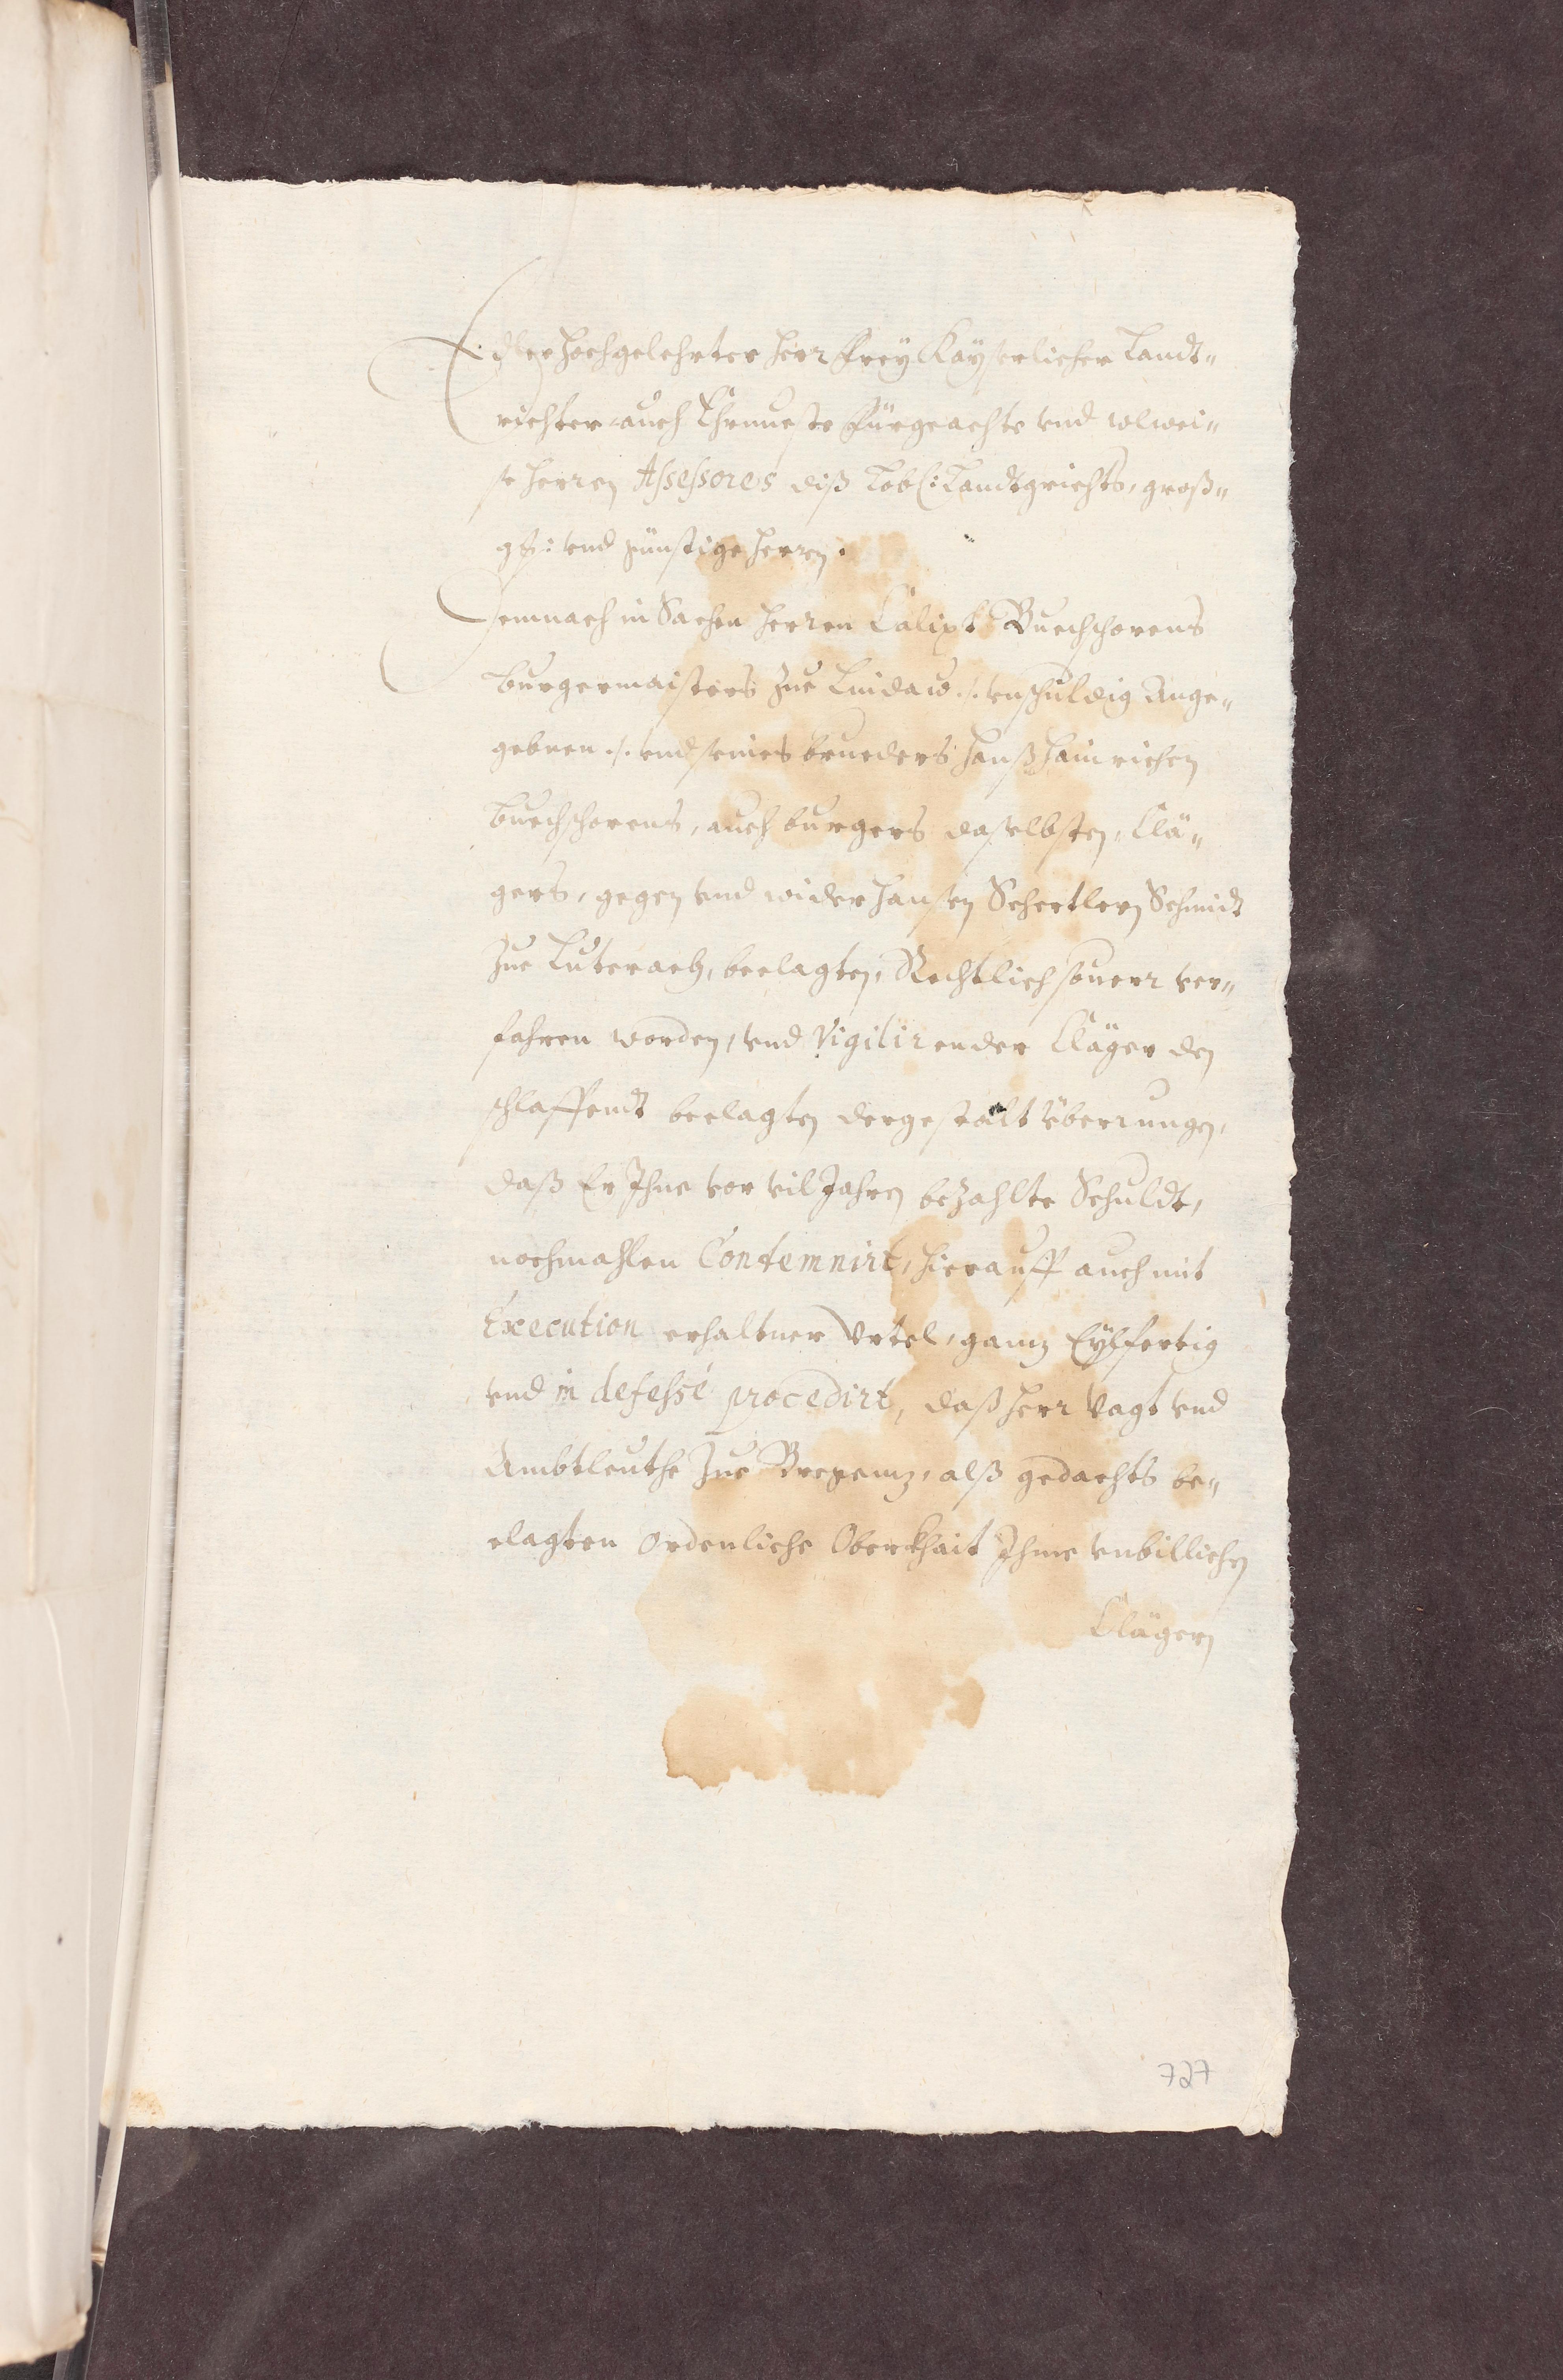 Edler hochgelehrter Herr Frey Kayserlicher Landt„
richter auch Ehrnueste fürgeachte vnd wolwei„
se Herren Assessores diß Lobl: Landtgrichts, groß„
gst: vnd günstige Herren.
Demnach in Sachen Herren Calixt Buechschorens
Burgermaisters zue Lindaw ./. vnschuldig Ange„
gebnen ./. vnd seines brueders Hanß Hainrichen
Buechschorens, auch burgers daselbsten, Clä„
gers, gegen vnd wider Hansen Schertlern Schmidt
zue Luterach, beclagten, Rechtlich souerr ver„
fahren worden, vnd Vigilirender Cläger den
schlaffendt beclagten dergestalt überrungen,
daß Er Ihne vor vil Jahren bezahlte Schuldt,
nochmahlen Contemnirt, hierauff auch mit
Execution erhaltner Vrtel, ganz Eylfertig
vnd in defesse procedirt, daß Herr Vagt vnd
Ambtleuthe zue Bregenz, alß gedachts be„
clagten ordenliche Oberkhait Ihme vnbillichen
Clägern
727